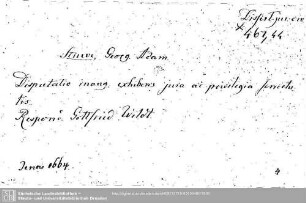 Dissert. jur. civ.
461,44
Struve, Georg Adam
Disputatio inaug. exhibens jura ac privilegia senectu
tis.
Respond. Gottfried Wildt.
Jenae 1664.
4
Sächsische Landesbibliothek –
Staats- und Universitätsbibliothek Dresden